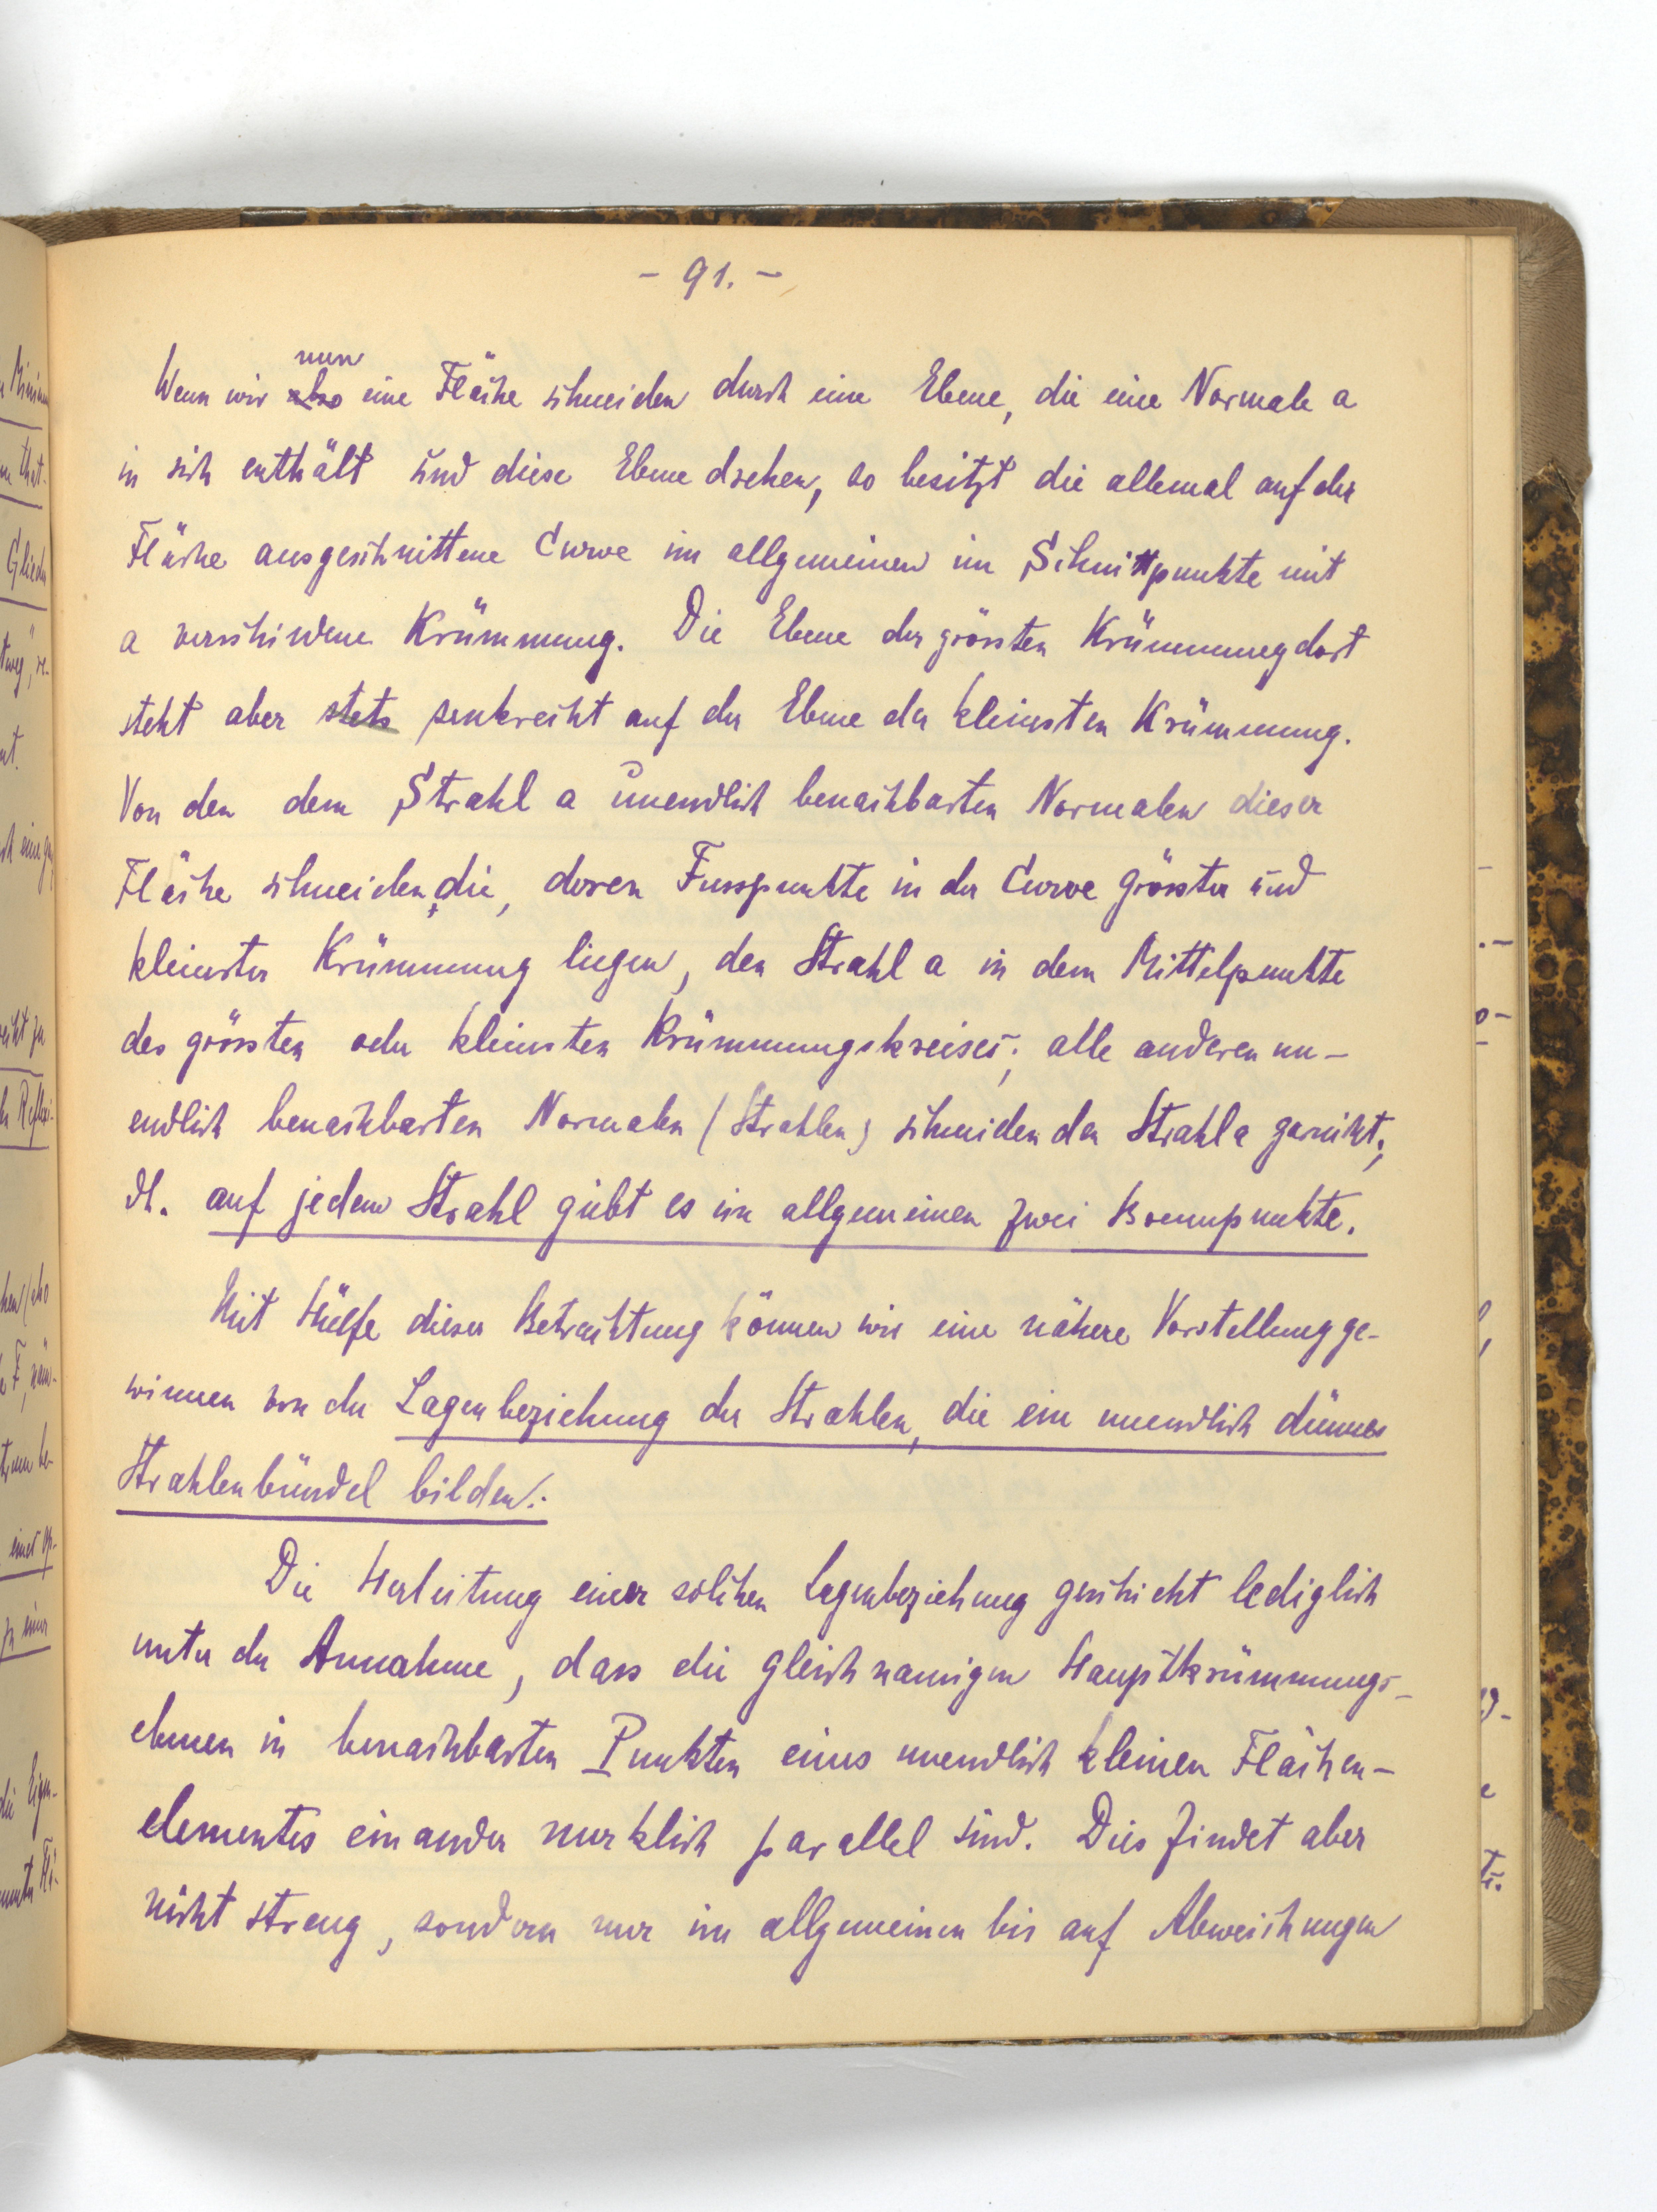 - 91. -
nun
Wenn wir also eine Fläche schneiden durch eine Ebene, die eine Normale a
in sich enthält und diese Ebene drehen, so besitzt die allemal auf der
Fläche ausgeschnittene Curve im allgemeinen im Schnittpunkte mit
a verschiedene Krümmung. Die Ebene der grössten Krümmung dort
steht aber stets senkrecht auf der Ebene der kleinsten Krümmung.
Von den dem Strahl a unendlich benachbarten Normalen dieser
Fläche schneiden die, deren Fusspunkte in der Curve grösster und
kleinster Krümmung liegen, den Strahl a in dem Mittelpunkte
des grössten oder kleinsten Krümmungskreises; alle anderen un-
endlich benachbarten Normalen (Strahlen) schneiden den Strahl a garnicht;
dh. auf jedem Strahl giebt es im allgemeinen zwei Brennpunkte.
Mit Hülfe dieser Betrachtung können wir eine nähere Vorstellung ge-
winnen von der Lagenbeziehung der Strahlen, die ein unendlich dünnes
Strahlenbündel bilden:
Die Herleitung einer solchen Lagenbeziehung geschieht lediglich
unter der Annahme, dass die gleichnamigen Hauptkrümmungs-
ebenen in benachbarten Punkten eines unendlich kleinen Flächen-
elementes einander merklich parallel sind. Dies findet aber
nicht streng, sondern nur im allgemeinen bis auf Abweichungen